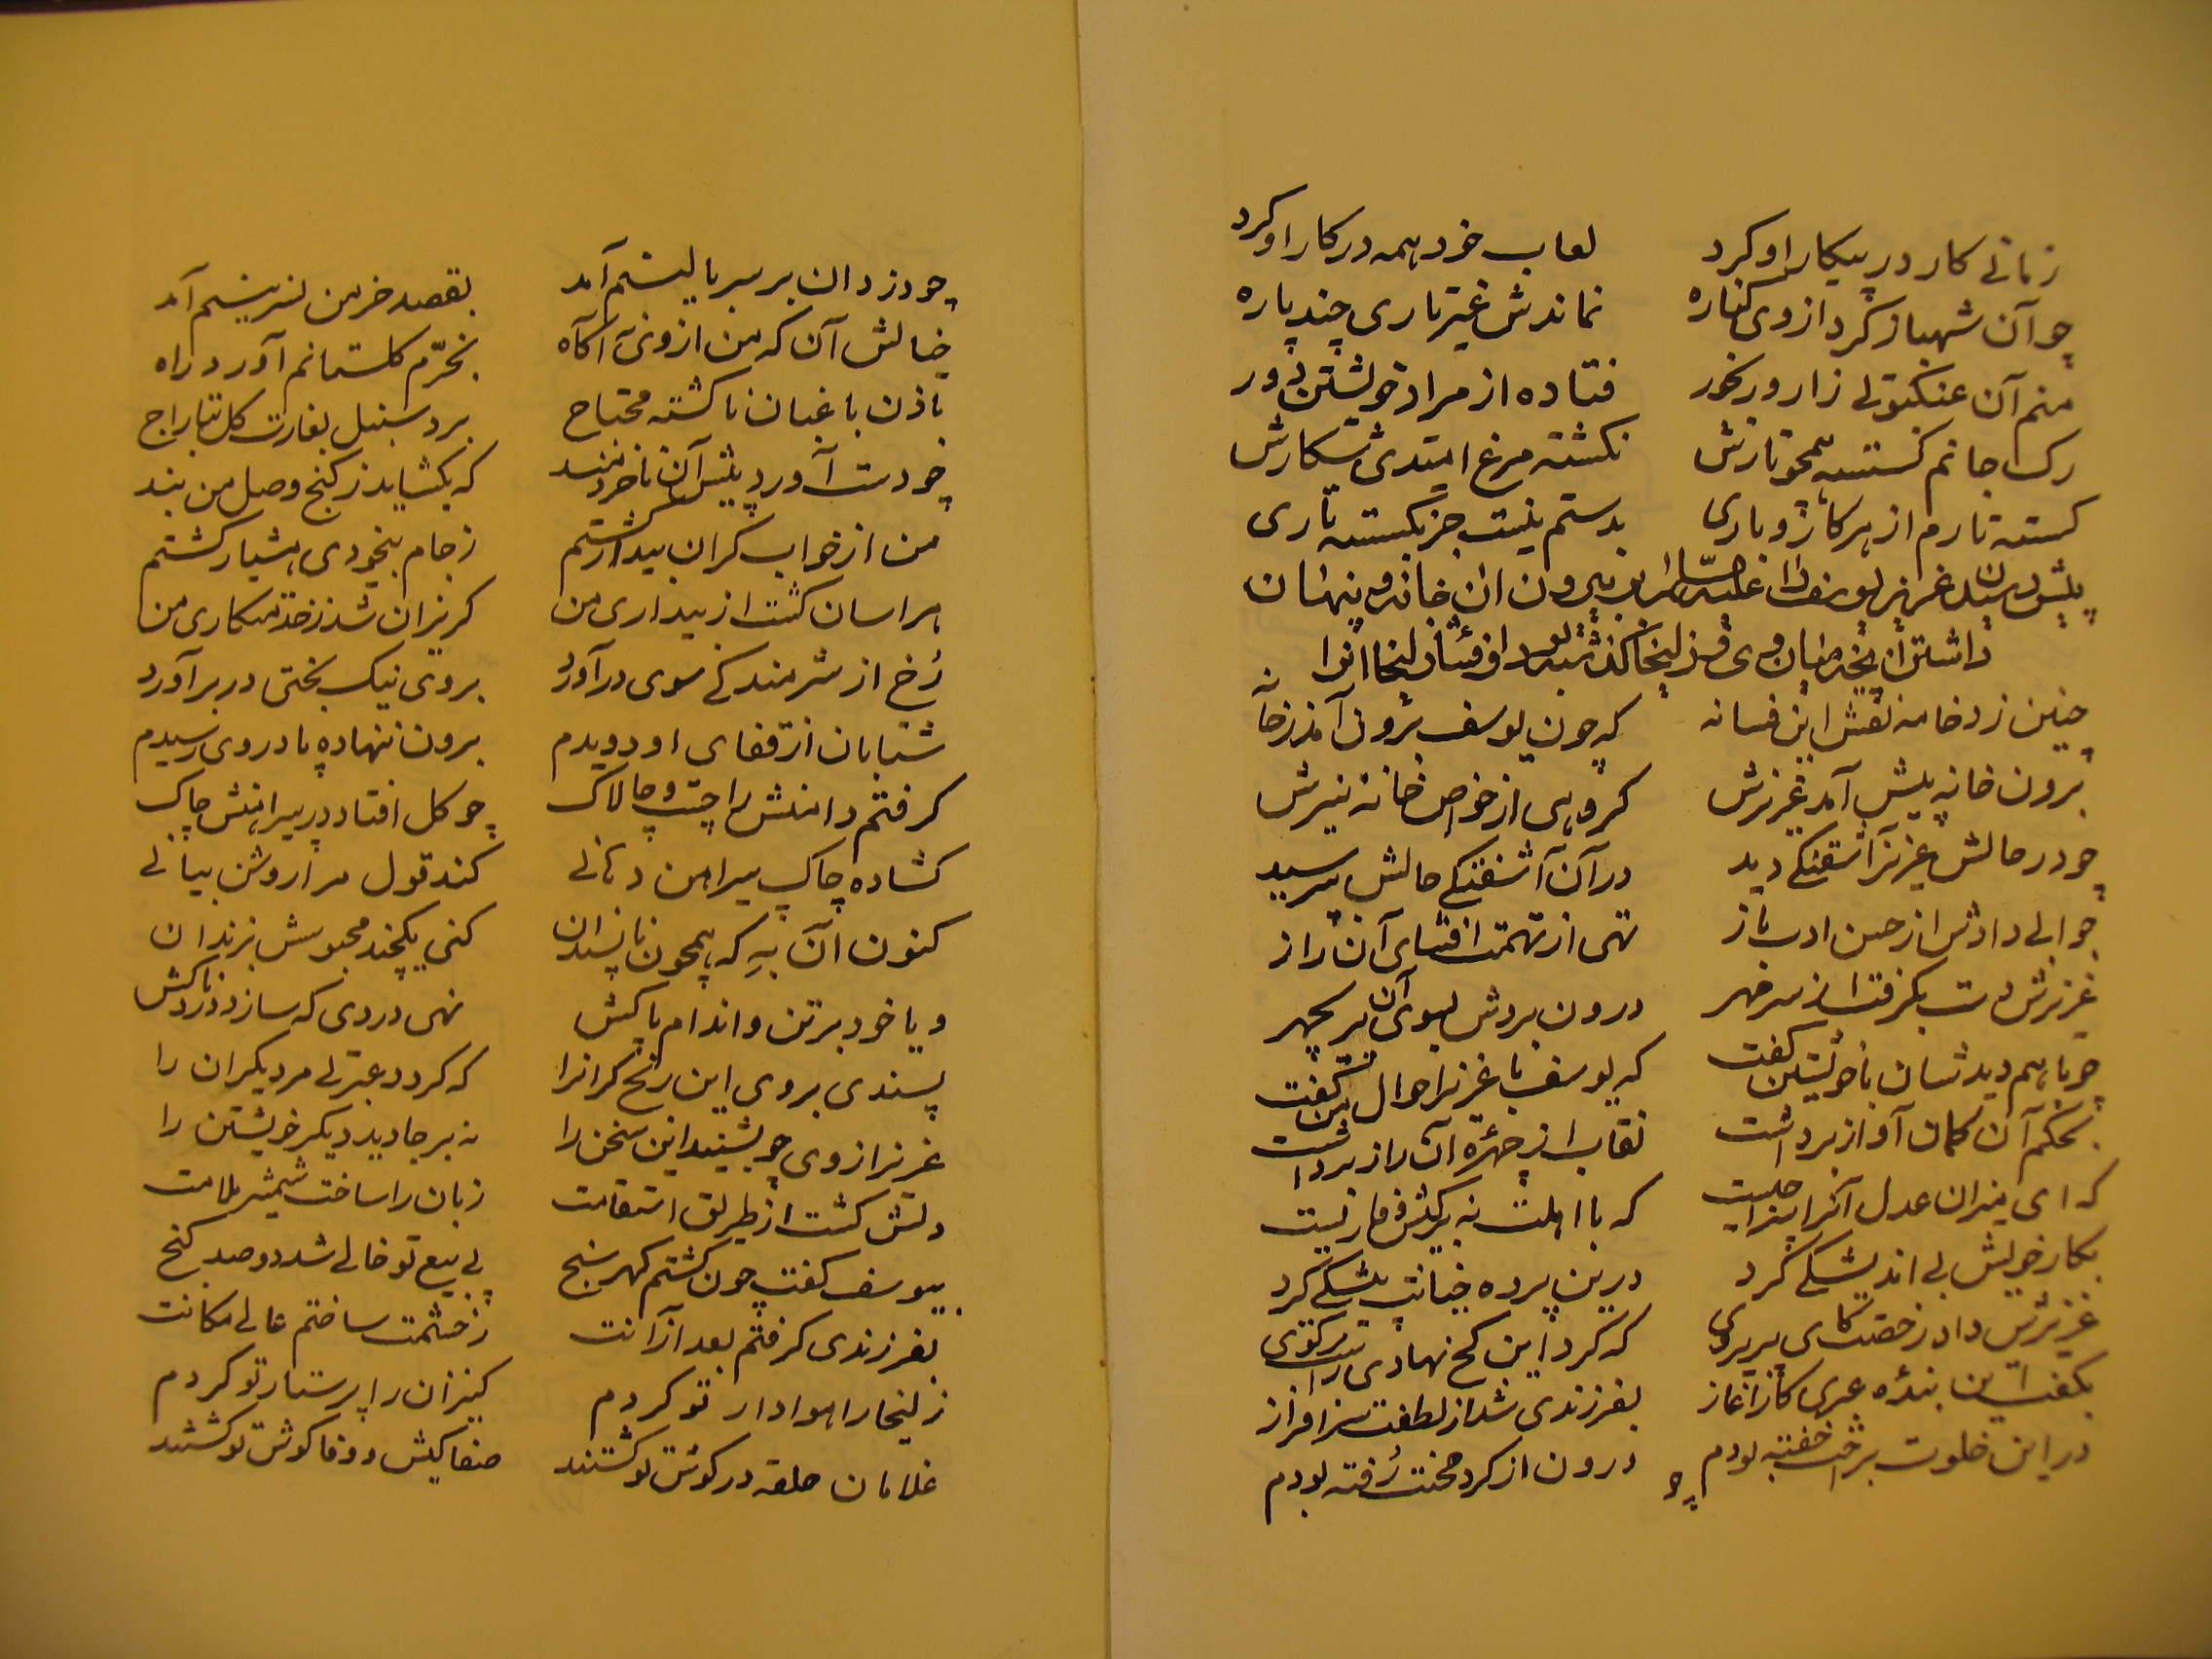 زمانی کار در پیکار او کرد لعاب خود همه در کار او کرد
چو آن شهباز کرد از وی کناره نماندش غیر تاری چند پاره
منم آن عنکبوت زار و رنجور فتاده از مراد خویشتن دور
رک جانم کسسته همچو تارش نکشته مرغ امیدی شکارش
کسسته تارم از هر کار و باری بدستم نیست جز بکسسته تاری
پیش رسیدن عزیز یوسف را علیه السلام بیرون آن خانه و پنهان
داشتن آنچه میان وی و زلیخا کذشته بود و افشای زلیخا آنرا
چنین زد خامه نقش این فسانه که چون یوسف برون آمد ز خانه
برون خانه پیش آمد عزیزش کروهی از خواص خانه نیزش
چو در حالش عزیز آشفتکی دید در آن آشفتکی حالش بپرسید
جوابی دادش از حسن ادب باز تهی از تهمت افشای آن راز
عزیزش دست بکرفت از سر مهر درون بردش بسوی آن پریچهر
چو با هم دیدشان با خویشتن کفت که یوسف با عزیز احوال من کفت
بحکم آن کمان آواز برداشت نقاب از چهره آن راز برداشت
که ای میزان عدل آنرا سزا چیست که با اهلت نه بر کیش وفا زیست
بکار خویش بی اندیشکی کرد درین پرده خیانت پیشکی کرد
عزیزش داد رخصت کای پری روی که کرد این کج نهادی راست برکوی
بکفت این بنده عبری کز آغاز بفرزندی شد از لطفت سرافراز
در این خلوت براحت خفته بودم درون از کرد محنت رفته بودم
چو
چو دزدان بر سر بالینم آمد بقصد خرمن نسرینم آمد
خیالش آن که من از وی نه آکاه بخرم کلستانم آورد راه
باذن باغبان ناکشته محتاج برد سنبل بغارت کل بتاراج
چو دست آورد پیش آن ناخردمند که بکشاید ز کنج وصل من بند
من از خواب کران بیدار کشتم ز جام بیخودی هشیار کشتم
هراسان کشت از بیداری من کریزان شد ز خدمتکاری من
رخ از شرمندکی سوی در آورد بروی نیک بختی در برآورد
شتابان از قفای او دویدم برون ننهاده پا در وی رسیدم
کرفتم دامنش را چست و چالاک چو کل افتاد در پیراهنش چاک
کشاده چاک پیراهن دهانی کند قول مرا روشن بیانی
کنون آن به که همچون ناپسندان کنی یکچند محبوسش بزندان
و یا خود بر تن و اندام پاکش نهی دردی که سازد دردناکش
پسندی بر وی این رنج کرانرا که کردد عبرتی مر دیکران را
عزیز از وی چو بشنید این سخن را نه بر جا دید دیکر خویشتن را
دلش کشت از طریق استقامت زبان را ساخت شمشیر ملامت
بیوسف کفت چون کشتم کهر سنج پی بیع تو خالی شد دو صد کنج
بفرزندی کرفتم بعد از آنت ز حشمت ساختم عالی مکانت
زلیخا را هوادار تو کردم کنیزان را پرستار تو کردم
غلامان حلقه در کوش تو کشتند صفا کیش و وفا کوش تو کشتند